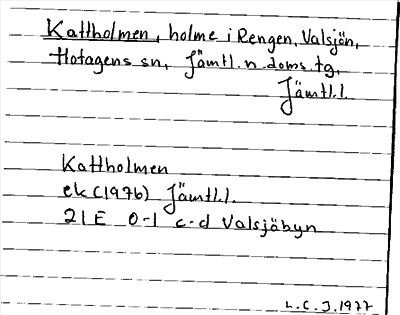 Kattholmen, holme i Rengen, Valsjön,
Hotagens sn, Jämtl. n. doms. tg,
Jämtl. l.
Kattholmen
ek (1976) Jämtl. l.
21E 0-1 c-d Valsjöbyn
L. C. J. 1977